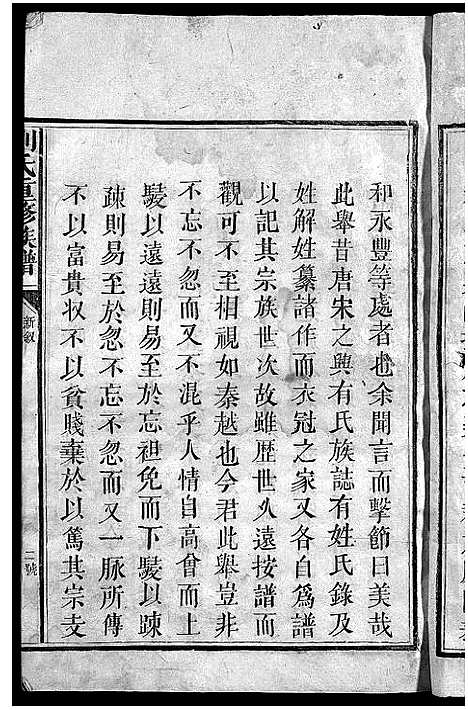 和永豐等處者也余聞言而擊節曰美哉
此舉昔唐宋之興有氏族誌有姓氏錄及
姓解姓纂諸作而衣冠之家又各自爲譜
以記其宗族世次故雖歴世久遠按譜而
觀可不至相視如秦越也今君此舉豈非
不忘不忽而又不混乎人情自高曾而上
騣以遠遠則易至於忘袒免而下騣以踈
疎則易至於忽不忘不忽而又一脉所傳
不以富貴収不以貧賤棄於以篤其宗支
劉氏重修族譜
新敘
二號